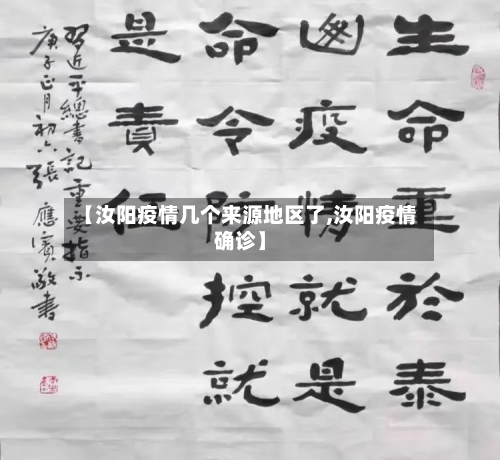 生命重於泰
山疫情就是
命令防控就
是責任
習近平總書記重要指示
庚子正月初六張應敬書
【汝阳疫情几个来源地区了,汝阳疫情
确诊】